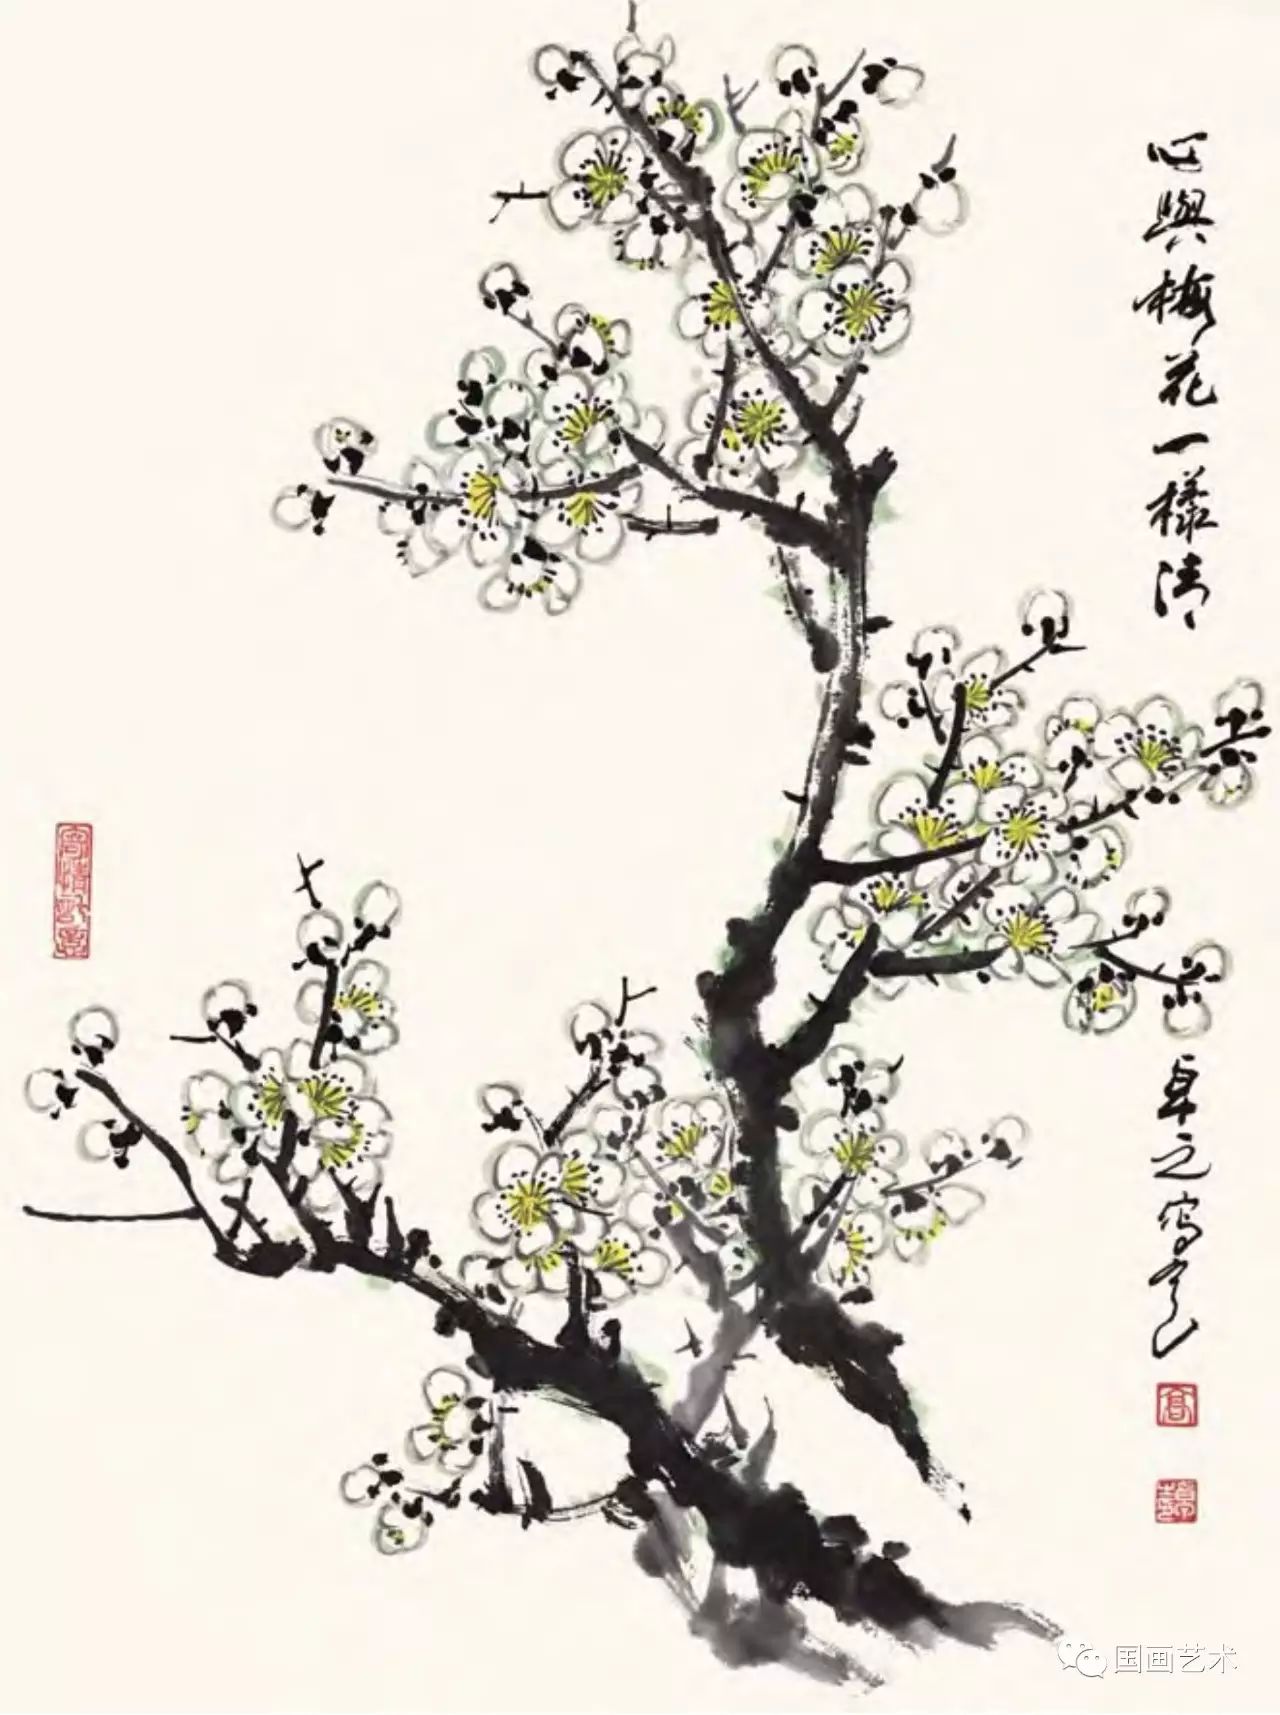 心與梅花一樣清
卓之寫
国画艺术